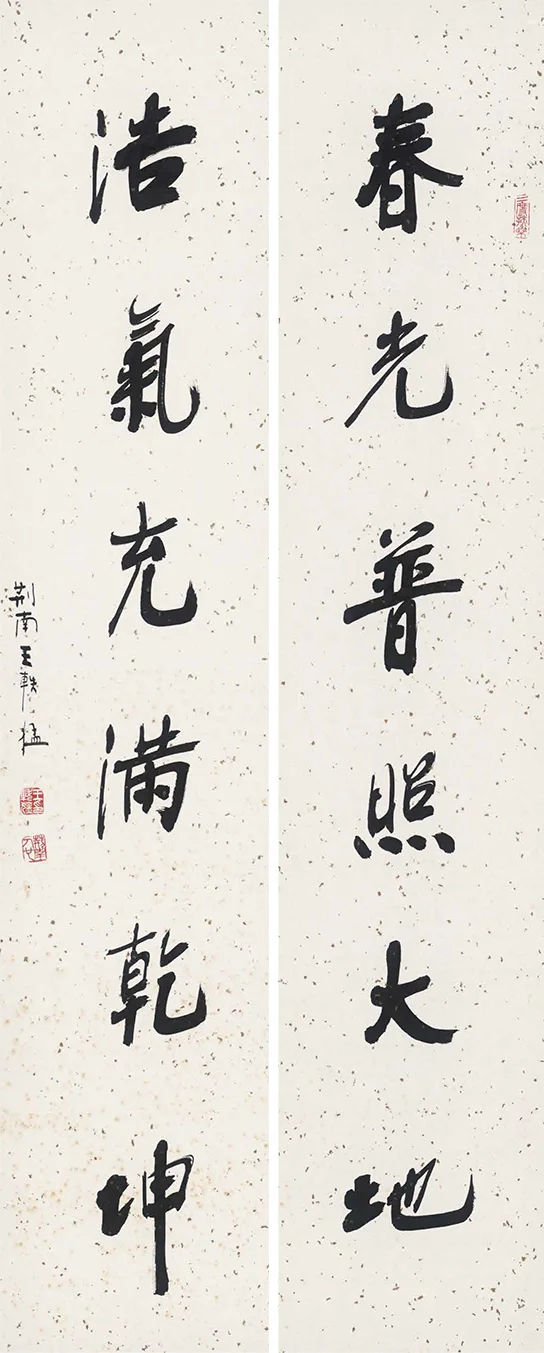 春光普照大地
浩氣充满乾坤
荆南王軼猛